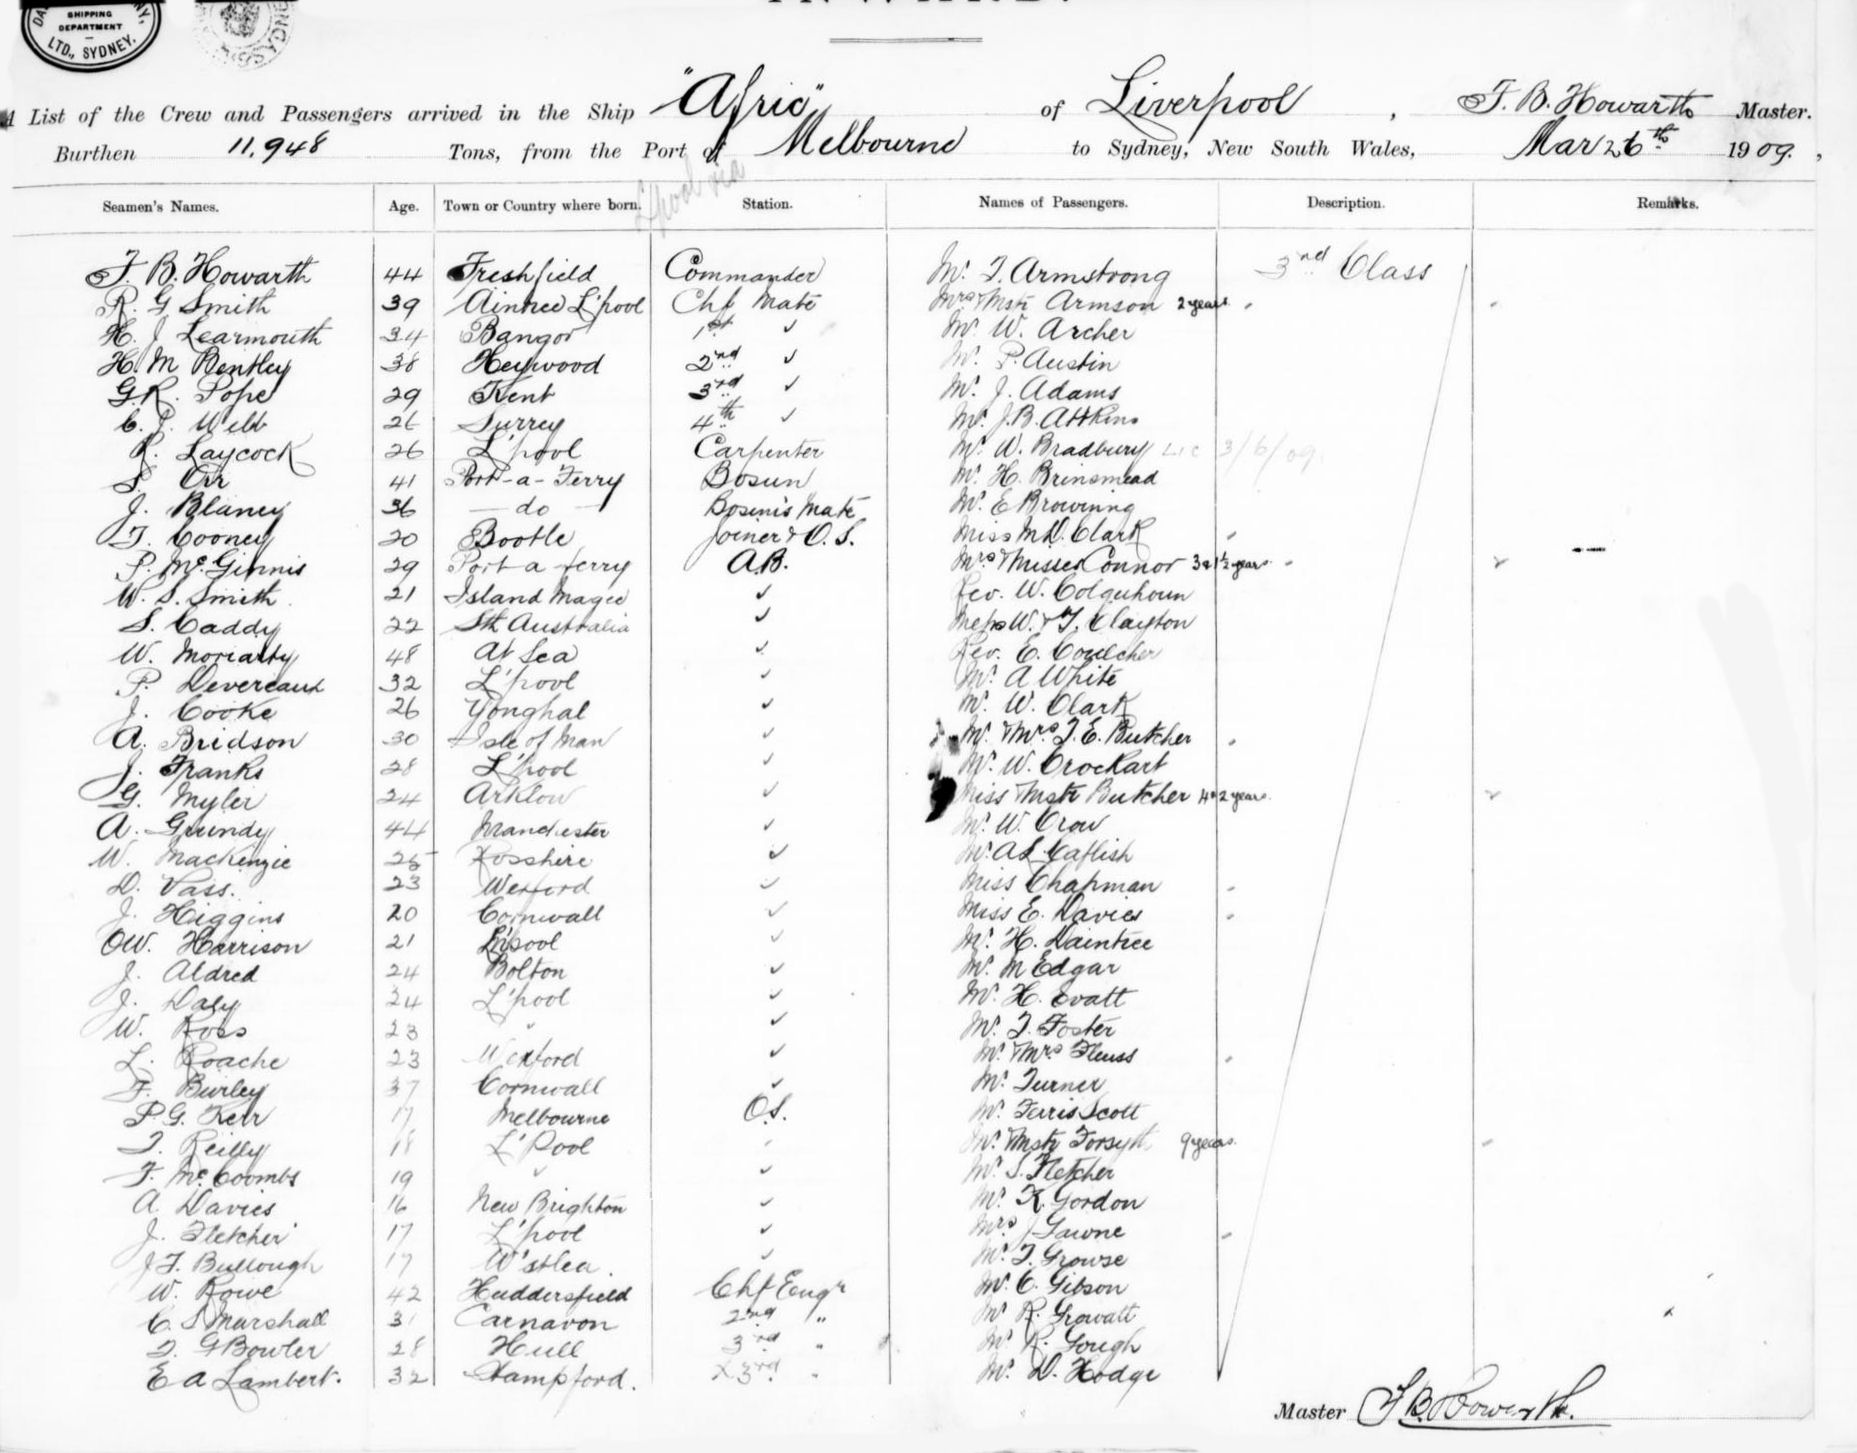 SHIPPING
DEPARTMENT
LTD., SYDNEY.
List of the Crew and Passengers arrived in the Ship "Afric" of Liverpool, F. B. Howarth Master.
Burthen 11,948 Tons, from the Port of Melbourne to Sydney, New South Wales, Mar 26th 1909,
L'pool via
Seamen's Names. Age. Town or Country where born. Station. Names of Passengers. Description. Remarks.
F. B. Howarth 44 Freshfield Commander Mr. T. Armstrong 3rd Class
R. G. Smith 39 Aintree L'pool Chf Mate Mrs & Mstr Armson 2 years
H. J. Learmouth 34 Bangor 1st ✓ Mr. W. Archer
H. M Bentley 38 Heywood 2nd ✓ Mr. P. Austin
G. R. Pope 29 Kent 3rd ✓ Mr. J. Adams
C. J. Webb 26 Surrey 4th ✓ Mr. J. B. Attkins
R. Laycock 26 L'pool Carpenter Mr. W. Bradbury 3/6/09
S. Orr 41 Port-a-Ferry Bosun Mr. H. Brinsmead
J. Blaney 36 — do — Bosun's Mate Mr. E Browning
T. Cooney 20 Bootle Joiner & O. S. Miss M. D. Clark
P. McGinnis 29 Port a ferry A.B. Mrs & Misses Connor 3 & 1½ years
W. S. Smith 21 Island Magee ✓ Rev. W. Colquhoun
S. Caddy 22 Sth Australia ✓ Messrs W. & T. Clayton
W. Moriarty 48 At Sea ✓ Rev. E. Coulcher
P. Devereaux 32 L'pool ✓ Mr. A White
J. Cooke 26 Yonghal ✓ Mr. W. Clark
A. Bridson 30 Isle of Man ✓ Mr. & Mrs T. E. Butcher
J. Franks 28 L'pool ✓ Mr. W. Crockart
G. Myler 24 Arklow ✓ Miss & Mstr Butcher 4 & 2 years
A. Grundy 44 Manchester ✓ Mr. W. Crow
W. Mackenzie 25 Rosshire ✓ Mr. A L Caflish
D. Vass. 23 Wexford ✓ Miss Chapman
J. Higgins 20 Cornwall ✓ Miss E. Davies
OW. Harrison 21 L'pool ✓ Mr. H. Daintree
J. Aldred 24 Bolton ✓ Mr. M Edgar
J. Daly 24 L'pool ✓ Mr. H. Evatt
W. Ross 23 " ✓ Mr. T. Foster
L. Roache 23 Wexford ✓ Mr. & Mrs Fleuss
F. Burley 37 Cornwall ✓ Mr. Turner
P. G. Kerr 17 Melbourne O.S. Mr. Ferris Scott
T. Reilly 18 L'Pool Mr. & Mstr Forsyth 9 years
F. McCoombs 19 " ✓ Mr. S. Fletcher
A. Davies 16 New Brighton ✓ Mr. K. Gordon
J. Fletcher 17 L'pool ✓ Mrs J Gawne
J F. Bullough 17 ✓ Mr. T. Growse
W. Rowe 42 Huddersfield Chf Engr Mr. C. Gibson
C. S Marshall 31 Carnavon 2nd " Mr R. Growatt
T. G Bowler 28 Hull 3rd " Mr. R. Gough
E A Lambert. 32 Stampford. 3rd " Mr. D. Hodge
Master F B Howarth.